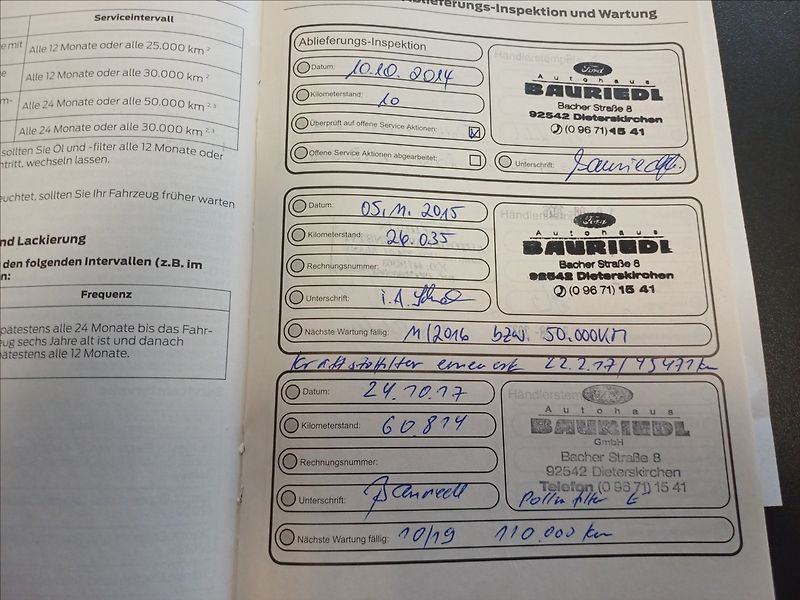 Serviceintervall
mit Alle 12 Monate oder alle 25.000 km 2
Alle 12 Monate oder alle 30.000 km 2
Alle 24 Monate oder alle 50.000 km 2,3
Alle 24 Monate oder alle 30.000 km 2,3
sollten Sie Öl und -filter alle 12 Monate oder
ntritt, wechseln lassen.
euchtet, sollten Sie Ihr Fahrzeug früher warten
nd Lackierung
den folgenden Intervallen (z.B. im
n:
Frequenz
pätestens alle 24 Monate bis das Fahr-
eug sechs Jahre alt ist und danach
pätestens alle 12 Monate.
Ablieferungs-Inspektion und Wartung
Ablieferungs-Inspektion
Datum: 10.10. 2014
Kilometerstand: 10
Überprüft auf offene Service Aktionen:
Offene Service Aktionen abgearbeitet:
Ford
Autohaus
BAURIEDL
Bacher Straße 8
92542 Dieterskirchen
(0 96 71) 15 41
Unterschrift:
Datum: 05.11. 2015
Kilometerstand: 26.035
Rechnungsnummer:
Unterschrift: i.A.
Ford
Autohaus
BAURIEDL
Bacher Straße 8
92542 Dieterskirchen
(0 96 71) 15 41
Nächste Wartung fällig: 11/2016 bzw. 50.000KM
Kraftstoffilter erneuert 22.2.17/45471km
Datum: 24.10.17
Kilometerstand: 60.814
Rechnungsnummer:
Unterschrift:
Händlerstem
Autohaus
BAURIEDL
GmbH
Bacher Straße 8
92542 Dieterskirchen
Telefon (0 96 71) 15 41
Pollenfilter E
Nächste Wartung fällig: 10/19 110.000 km